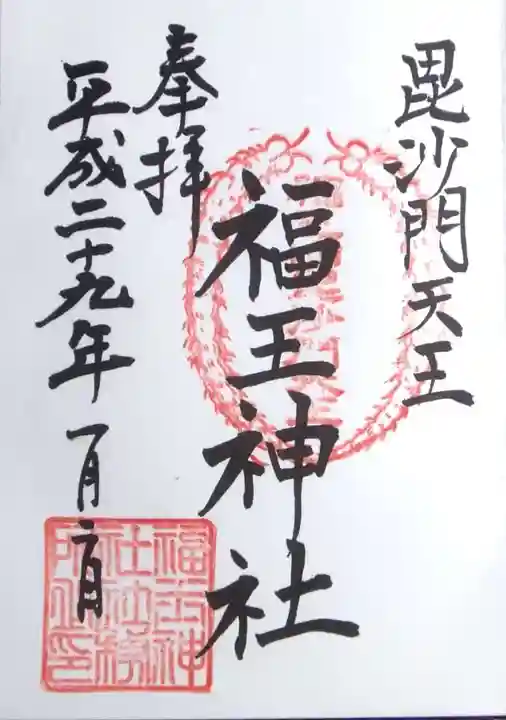 毘沙門天王
福王神社
奉拝
平成二十九年一月二日
福王神
社社務
所之印